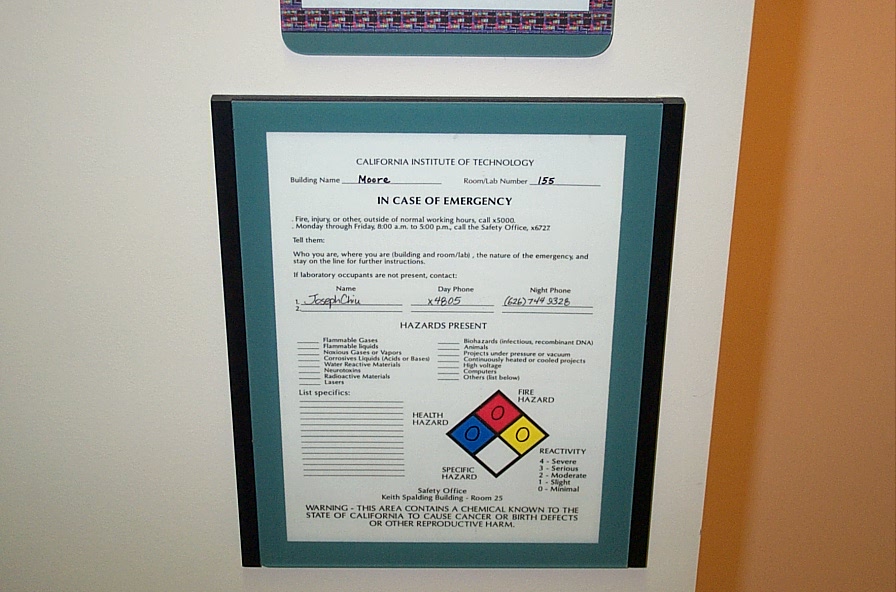 CALIFORNIA INSTITUTE OF TECHNOLOGY
Building Name Moore Room/Lab Number 155
IN CASE OF EMERGENCY
. Fire, injury, or other, outside of normal working hours, call x5000.
. Monday through Friday, 8:00 a.m. to 5:00 p.m., call the Safety Office, x6727
Tell them:
Who you are, where you are (building and room/lab) , the nature of the emergency, and
stay on the line for further instructions.
If laboratory occupants are not present, contact:
Name Day Phone Night Phone
1. Joseph Chiu x4805 (626) 744 9328
2.
HAZARDS PRESENT
Flammable Gases
Flammable liquids
Noxious Gases or Vapors
Corrosives Liquids (Acids or Bases)
Water Reactive Materials
Neurotoxins
Radioactive Materials
Lasers
Biohazards (infectious, recombinant DNA)
Animals
Projects under pressure or vacuum
Continuously heated or cooled projects
High voltage
Computers
Others (list below)
List specifics:
FIRE
HAZARD
0
HEALTH
HAZARD
0 0
REACTIVITY
4 - Severe
3 - Serious
2 - Moderate
1 - Slight
0 - Minimal
SPECIFIC
HAZARD
Safety Office
Keith Spalding Building - Room 25
WARNING - THIS AREA CONTAINS A CHEMICAL KNOWN TO THE
STATE OF CALIFORNIA TO CAUSE CANCER OR BIRTH DEFECTS
OR OTHER REPRODUCTIVE HARM.